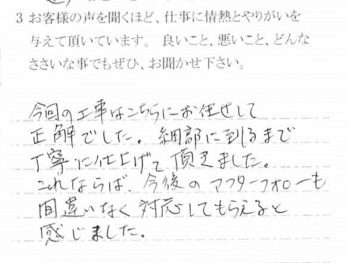 3 お客様の声を聞くほど、仕事に情熱とやりがいを
与えて頂いています。 良いこと、悪いこと、どんな
ささいな事でもぜひ、お聞かせ下さい。
今回の工事はこちらにお任せして
正解でした。細部に到るまで
丁寧に仕上げて頂きました。
これならば、今後のアフターフォローも
間違いなく対応してもらえると
感じました。